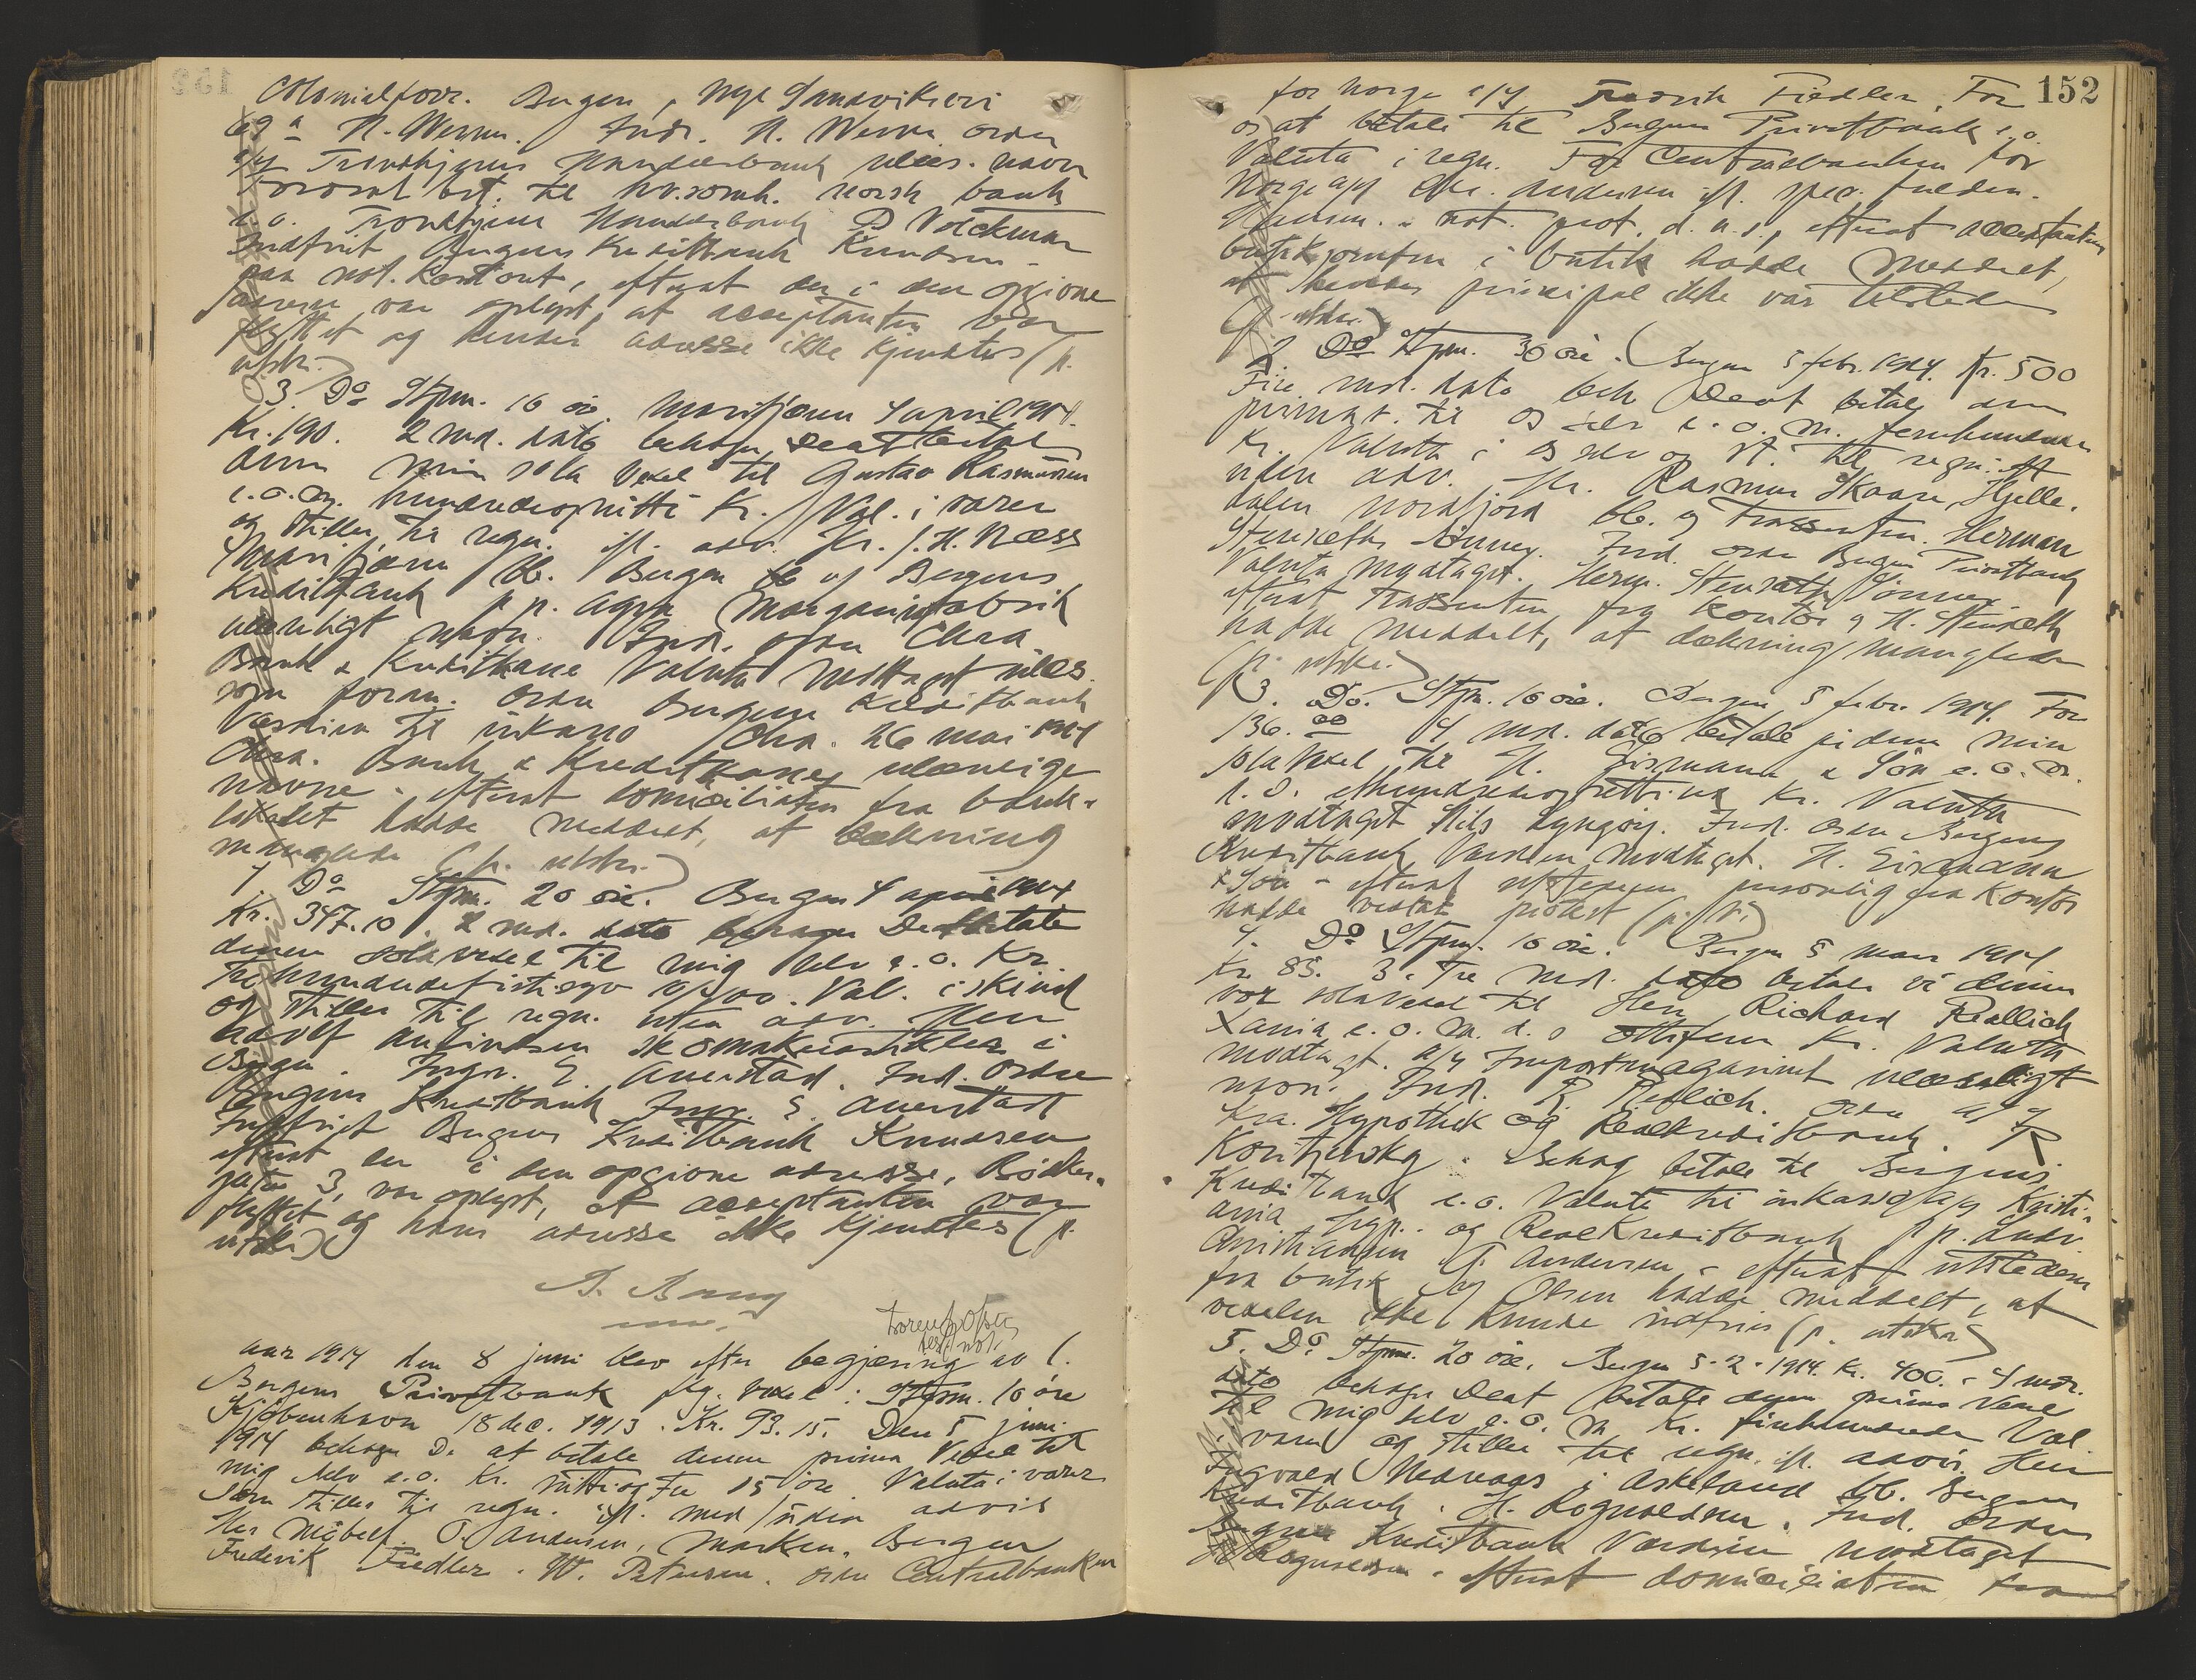 Colonialforr. Bergen, Nye Sandviksvei
69 a N. Werner. Indr. N. Werner ordre
a/s Trondhjems Handelsbank ulæs. navn
Forevist bet. til hvrsomh. norsk bank
e.o. Trondhjems Handelsbank D Volckmar
Indfriet Bergens Kreditbank Knudsen -
paa not. Kontort, efterat der i den opgivne
adresse var oplyst, at acceptanten var
flyttet og hendes adresse ikke kjendtes (p.
utskr.)
3. Do Stpm. 10 öre. Marifjæren 4 april 1914.
Kr. 190. 2 md. dato behager De at betale
denne min sola vexel til Gustav Rasmussen
e.o. m. hundredeognitti Kr. Val. i varer
og stilles til regn. ifl. adv. Hr. J. H. Næss
Marifjæren bb. Bergen b og Bergens
Kreditbank p p. Agra Margarinfabrik
ulæseligt navn. Ind. ordre Chra
Bank & Kreditkasse Valuta modtaget ulæs.
som foran. Ordre Bergens Kreditbank
Værdien til inkasso Chra. 26 mai 1914
Chra. Bank & Kreditkasse ulæselige
navne - efterat domiciliaten fra bank-
lokalet hadde meddelt, at dækning
manglede (p. utskr.)
4 Do Stpm. 20 öre. Bergen 4 april 1914
Kr. 347.10. 2 md. dato behager De at betale
denne sola vexel til mig selv e.o. Kr.
trehundredefirtisyv 10/100. Val. i skind
og stilles til regn. uten adv. Herr
Adolf Amundsen skomakerartikler i
Bergen. Ingv. S. Auerstad. Ind. Ordre
Bergens Kreditbank Ingv. S. Auerstad
Indfriet Bergens Kreditbank Knudsen
efterat der i den opgivne adresse, Bödker-
gaten 3, var oplyst, at acceptanten var
flyttet og hans adresse ikke kjendtes (p.
utskr.)
A. Bang
Aar 1914 den 8 juni blev efter begjæring av 1.
Bergens Privatbank flg. vexel: Stpm. 10 öre
Kjöbenhavn 18 dec. 1913. Kr. 93.15. Den 5 juni
1914 behager De at betale denne prima Vexel til
mig selv e.o. Kr. nittiogtre 15 öre Valuta i varer
som stilles til regn. ifl. med/uden advis
Her Möbelf. O. Andersen, Marken, Bergen
Frederik Fiedler. W. Petersen. ordre Centralbanken
152
for Norge a/s Fredrik Fiedler. For
os at betale til Bergens Privatbank e.o.
Valuta i regn. For Centralbanken for
Norge a/s Chr. Andersen ifl. spec. fuldm.
Hansen. - not. prot. d. n. s., efterat acceptantens
butikjomfru i butik hadde meddelt,
at hendes principal ikke var tilstede
(p. utskr.)
2 Do Stpm. 30 öre. Bergen 5 febr. 1914. Kr. 500
Fire md. dato beh De at betale denne
primavx. til os selv e.o. m. femhundrede
Kr. Valuta i os selv og st. til regn. ifl
uden adv. Hr. Rasmus Skaare, Hjelle-
dalen Nordfjord bb. og Trassenten. Herman
Steinræths Sönner. Ind. ordre Bergens Privatbank
Valuta modtaget. Herm. Steinræths Sönner
efterat Trassenten fra kontor og H. Steinræth
hadde meddelt, at dækning manglede
(p. utskr.)
3. Do. Stpm. 10 öre. Bergen 5 febr. 1914. For
136.00 4 md. dato betale jeg denne min
sola vexel til H. Eismann & Sön e.o. m.
d. s. ethundredeogtrettisex Kr. Valuta
modtaget Nils Lyngöy. Ind. ordre Bergens
Kreditbank Værdien modtaget. H. Eismann
& Sön - efterat utstederen personlig fra kontor
hadde vedtat protest (p. v.)
4. Do Stpm. 10 öre. Bergen 5 mars 1914
Kr. 85. 3. Tre md. dato betaler vi denne
vor solavexel til Herr Richard Redlich
Xania e.o. m. d. s ottifem Kr. Valuta
modtaget. A/s Importmagasinet ulæseligt
navn. Ind. R. Redlich. Ordre a/s
Kra. Hypothek og Realkreditbank. R
Koritzinsky. Behag betale til Bergens
Kreditbank e.o. Valuta til inkasso a/s Kristi-
ania Hyp.- og Realkreditbank p p. Ludv
Christiansen G. Andersen - efterat utstederen
fra butik og Olsen hadde meddelt, at
vexelen ikke kunde indfries (p. utskr.)
5. Do. Stpm. 20 öre. Bergen 5-2-1914. Kr. 400. - 4 mdr.
dato behager De at betale denne prima Vexel
til mig selv e.o. m Kr. firehundrede Val.
i varer og stilles til regn. ifl. advis Herr
Ingvald Nedreaas i Askeland bb. Bergens
Kreditbank. H. Rognaldsen. Ind. Ordre
Bergens Kreditbank Værdien modtaget
H. Rognaldsen. efterat domiciliaten fra